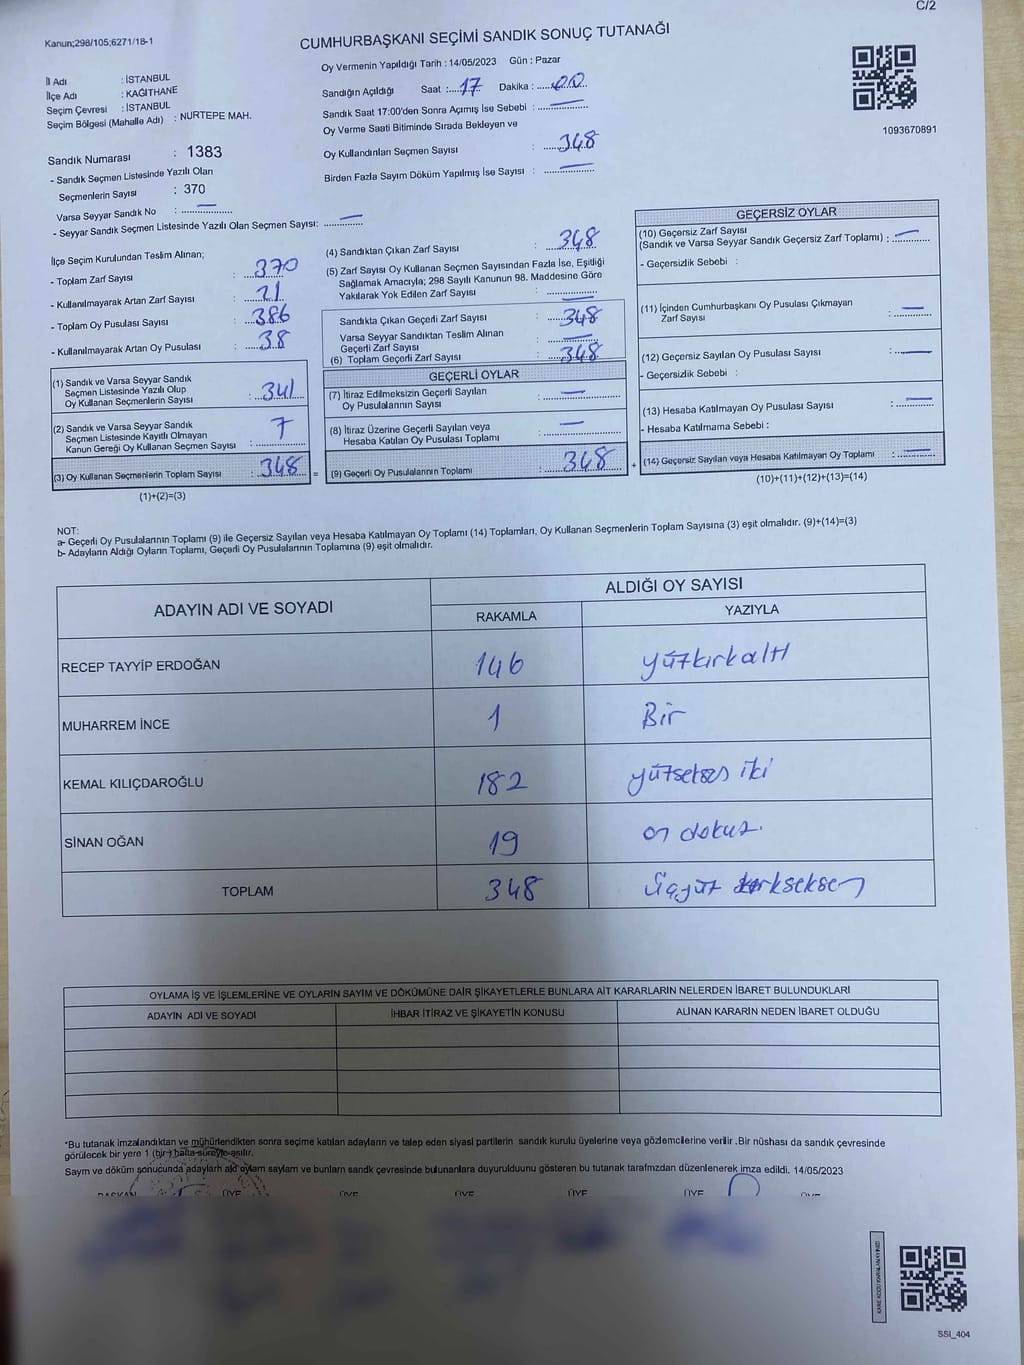 C/2
Kanun;298/105;6271/18-1
CUMHURBAŞKANI SEÇİMİ SANDIK SONUÇ TUTANAĞI
Oy Vermenin Yapıldığı Tarih : 14/05/2023 Gün : Pazar
İl Adı : İSTANBUL
İlçe Adı : KAĞITHANE
Seçim Çevresi : İSTANBUL
Seçim Bölgesi (Mahalle Adı) : NURTEPE MAH.
Sandığın Açıldığı Saat : 17 Dakika : 00
Sandık Saat 17:00'den Sonra Açımış İse Sebebi : —
Oy Verme Saati Bitiminde Sırada Bekleyen ve
Oy Kullandırılan Seçmen Sayısı : 348
Birden Fazla Sayım Döküm Yapılmış İse Sayısı : —
1093670891
Sandık Numarası : 1383
- Sandık Seçmen Listesinde Yazılı Olan
Seçmenlerin Sayısı : 370
Varsa Seyyar Sandık No : —
- Seyyar Sandık Seçmen Listesinde Yazılı Olan Seçmen Sayısı: —
İlçe Seçim Kurulundan Teslim Alınan;
- Toplam Zarf Sayısı : 370
- Kullanılmayarak Artan Zarf Sayısı : 21
- Toplam Oy Pusulası Sayısı : 386
- Kullanılmayarak Artan Oy Pusulası : 38
(1) Sandık ve Varsa Seyyar Sandık
Seçmen Listesinde Yazılı Olup
Oy Kullanan Seçmenlerin Sayısı : 341
(2) Sandık ve Varsa Seyyar Sandık
Seçmen Listesinde Kayıtlı Olmayan
Kanun Gereği Oy Kullanan Seçmen Sayısı : 7
(3) Oy Kullanan Seçmenlerin Toplam Sayısı : 348 =
(1)+(2)=(3)
(4) Sandıktan Çıkan Zarf Sayısı : 348
(5) Zarf Sayısı Oy Kullanan Seçmen Sayısından Fazla İse, Eşitliği
Sağlamak Amacıyla; 298 Sayılı Kanunun 98. Maddesine Göre
Yakılarak Yok Edilen Zarf Sayısı : —
Sandıkta Çıkan Geçerli Zarf Sayısı : 348
Varsa Seyyar Sandıktan Teslim Alınan
Geçerli Zarf Sayısı : —
(6) Toplam Geçerli Zarf Sayısı : 348
GEÇERLİ OYLAR
(7) İtiraz Edilmeksizin Geçerli Sayılan
Oy Pusulalarının Sayısı : —
(8) İtiraz Üzerine Geçerli Sayılan veya
Hesaba Katılan Oy Pusulası Toplamı : —
(9) Geçerli Oy Pusulalarının Toplamı : 348 +
GEÇERSİZ OYLAR
(10) Geçersiz Zarf Sayısı
(Sandık ve Varsa Seyyar Sandık Geçersiz Zarf Toplamı) : —
- Geçersizlik Sebebi :
(11) İçinden Cumhurbaşkanı Oy Pusulası Çıkmayan
Zarf Sayısı : —
(12) Geçersiz Sayılan Oy Pusulası Sayısı : —
- Geçersizlik Sebebi :
(13) Hesaba Katılmayan Oy Pusulası Sayısı : —
- Hesaba Katılmama Sebebi :
(14) Geçersiz Sayılan veya Hesaba Katılmayan Oy Toplamı : —
(10)+(11)+(12)+(13)=(14)
NOT:
a- Geçerli Oy Pusulalarının Toplamı (9) ile Geçersiz Sayılan veya Hesaba Katılmayan Oy Toplamı (14) Toplamları, Oy Kullanan Seçmenlerin Toplam Sayısına (3) eşit olmalıdır. (9)+(14)=(3)
b- Adayların Aldığı Oyların Toplamı, Geçerli Oy Pusulalarının Toplamına (9) eşit olmalıdır.
ADAYIN ADI VE SOYADI ALDIĞI OY SAYISI
RAKAMLA YAZIYLA
RECEP TAYYİP ERDOĞAN 146 yüzkırkaltı
MUHARREM İNCE 1 Bir
KEMAL KILIÇDAROĞLU 182 yüzseksen iki
SİNAN OĞAN 19 on dokuz.
TOPLAM 348 üçyüz kırksekiz
OYLAMA İŞ VE İŞLEMLERİNE VE OYLARIN SAYIM VE DÖKÜMÜNE DAİR ŞİKAYETLERLE BUNLARA AİT KARARLARIN NELERDEN İBARET BULUNDUKLARI
ADAYIN ADI VE SOYADI İHBAR İTİRAZ VE ŞİKAYETİN KONUSU ALINAN KARARIN NEDEN İBARET OLDUĞU
*Bu tutanak imzalandıktan ve mühürlendikten sonra seçime katılan adayların ve talep eden siyasi partilerin sandık kurulu üyelerine veya gözlemcilerine verilir .Bir nüshası da sandık çevresinde
görülecek bir yere 1 (bir) hafta süreyle asılır.
Sayım ve döküm sonucunda adayların ald oyların sayıların ve bunların sandk çevresinde bulunanlara duyurulduunu gösteren bu tutanak tarafmzdan düzenlenerek imza edildi. 14/05/2023
BAŞKAN ÜYE ÜYE ÜYE ÜYE ÜYE ÜYE
SSI_404